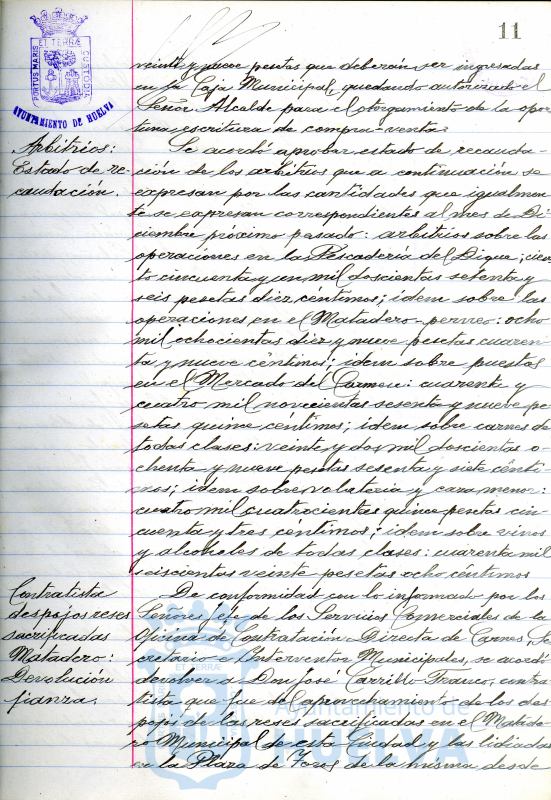 11
PORTUS MARIS ET TERRÆ CUSTODIA
AYUNTAMIENTO DE HUELVA
veinte y nueve pesetas que deberán ser ingresadas
en la Caja Municipal, quedando autorizado el
Señor Alcalde para el otorgamiento de la opor
tuna escritura de compra-venta.
Arbitrios:
Estado de re-
caudación.
Se acordó aprobar estado de recauda-
ción de los arbitrios que a continuación se
expresan por las cantidades que igualmen
te se expresan correspondientes al mes de Di-
ciembre próximo pasado: arbitrios sobre las
operaciones en la Pescadería del Dique; cien
to cincuenta y un mil doscientas setenta y
seis pesetas diez céntimos; idem sobre las
operaciones en el Matadero-perneo: ocho
mil ochocientas diez y nueve pesetas cuaren
ta y nueve céntimos; idem sobre puestos
en el Mercado del Carmen: cuarenta y
cuatro mil novecientas sesenta y nueve pe
setas quince céntimos; idem sobre carnes de
todas clases: veinte y dos mil doscientas o-
chenta y nueve pesetas sesenta y siete cénti-
mos; idem sobre volateria y caza menor:
cuatro mil cuatrocientas quince pesetas cin-
cuenta y tres céntimos; idem sobre vinos
y alcoholes de todas clases: cuarenta mil
seiscientas veinte pesetas ocho céntimos
Contratista
despojos reses
sacrificadas
Matadero:
Devolución
fianza.
De conformidad con lo informado por los
Señores Jefe de los Servicios Comerciales de la
Oficina de Contratación Directa de Carnes, Se
cretario e Interventor Municipales, se acordó
devolver a Don José Carrillo Franco, contra
tista que fue del aprovechamiento de los des
pojos de las reses sacrificadas en el Matade
ro Municipal de esta Ciudad y las lidiadas
en la Plaza de Toros de la misma desde
Ayuntamiento de
HUELVA